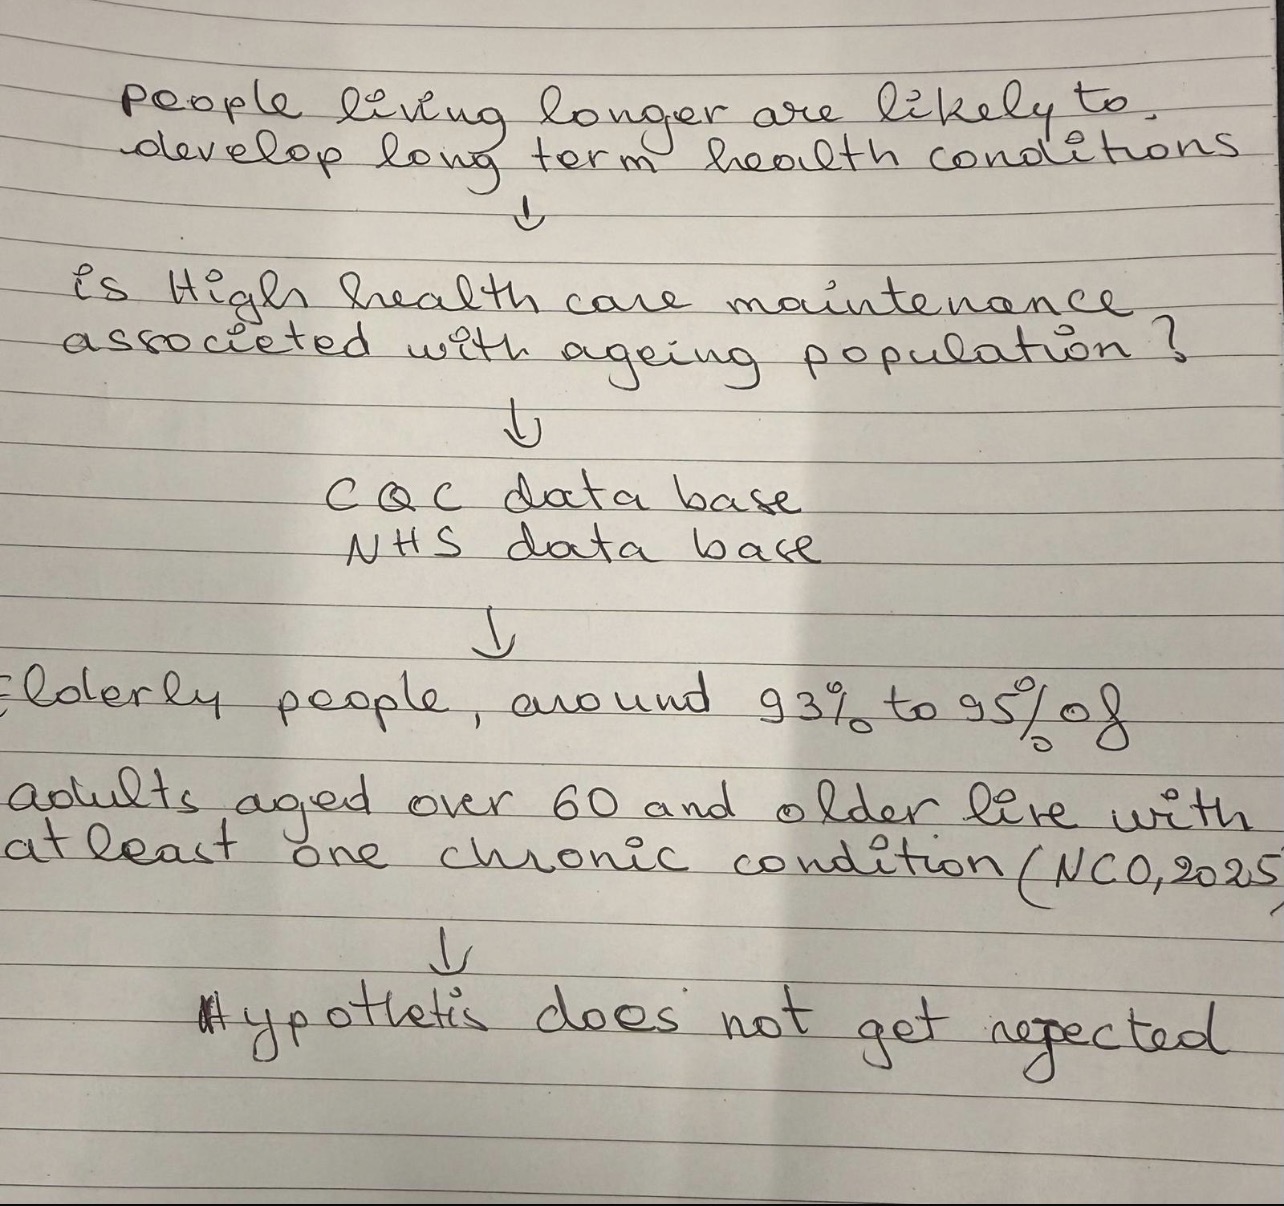 people living longer are likely to
develop long term health conditions
↓
is High health care maintenance
associeted with ageing population?
↓
CQC data base
NHS data base
↓
Elderly people, around 93% to 95% of
adults aged over 60 and older live with
at least one chronic condition (NCO, 2025)
↓
Hypothetis does not get rejected